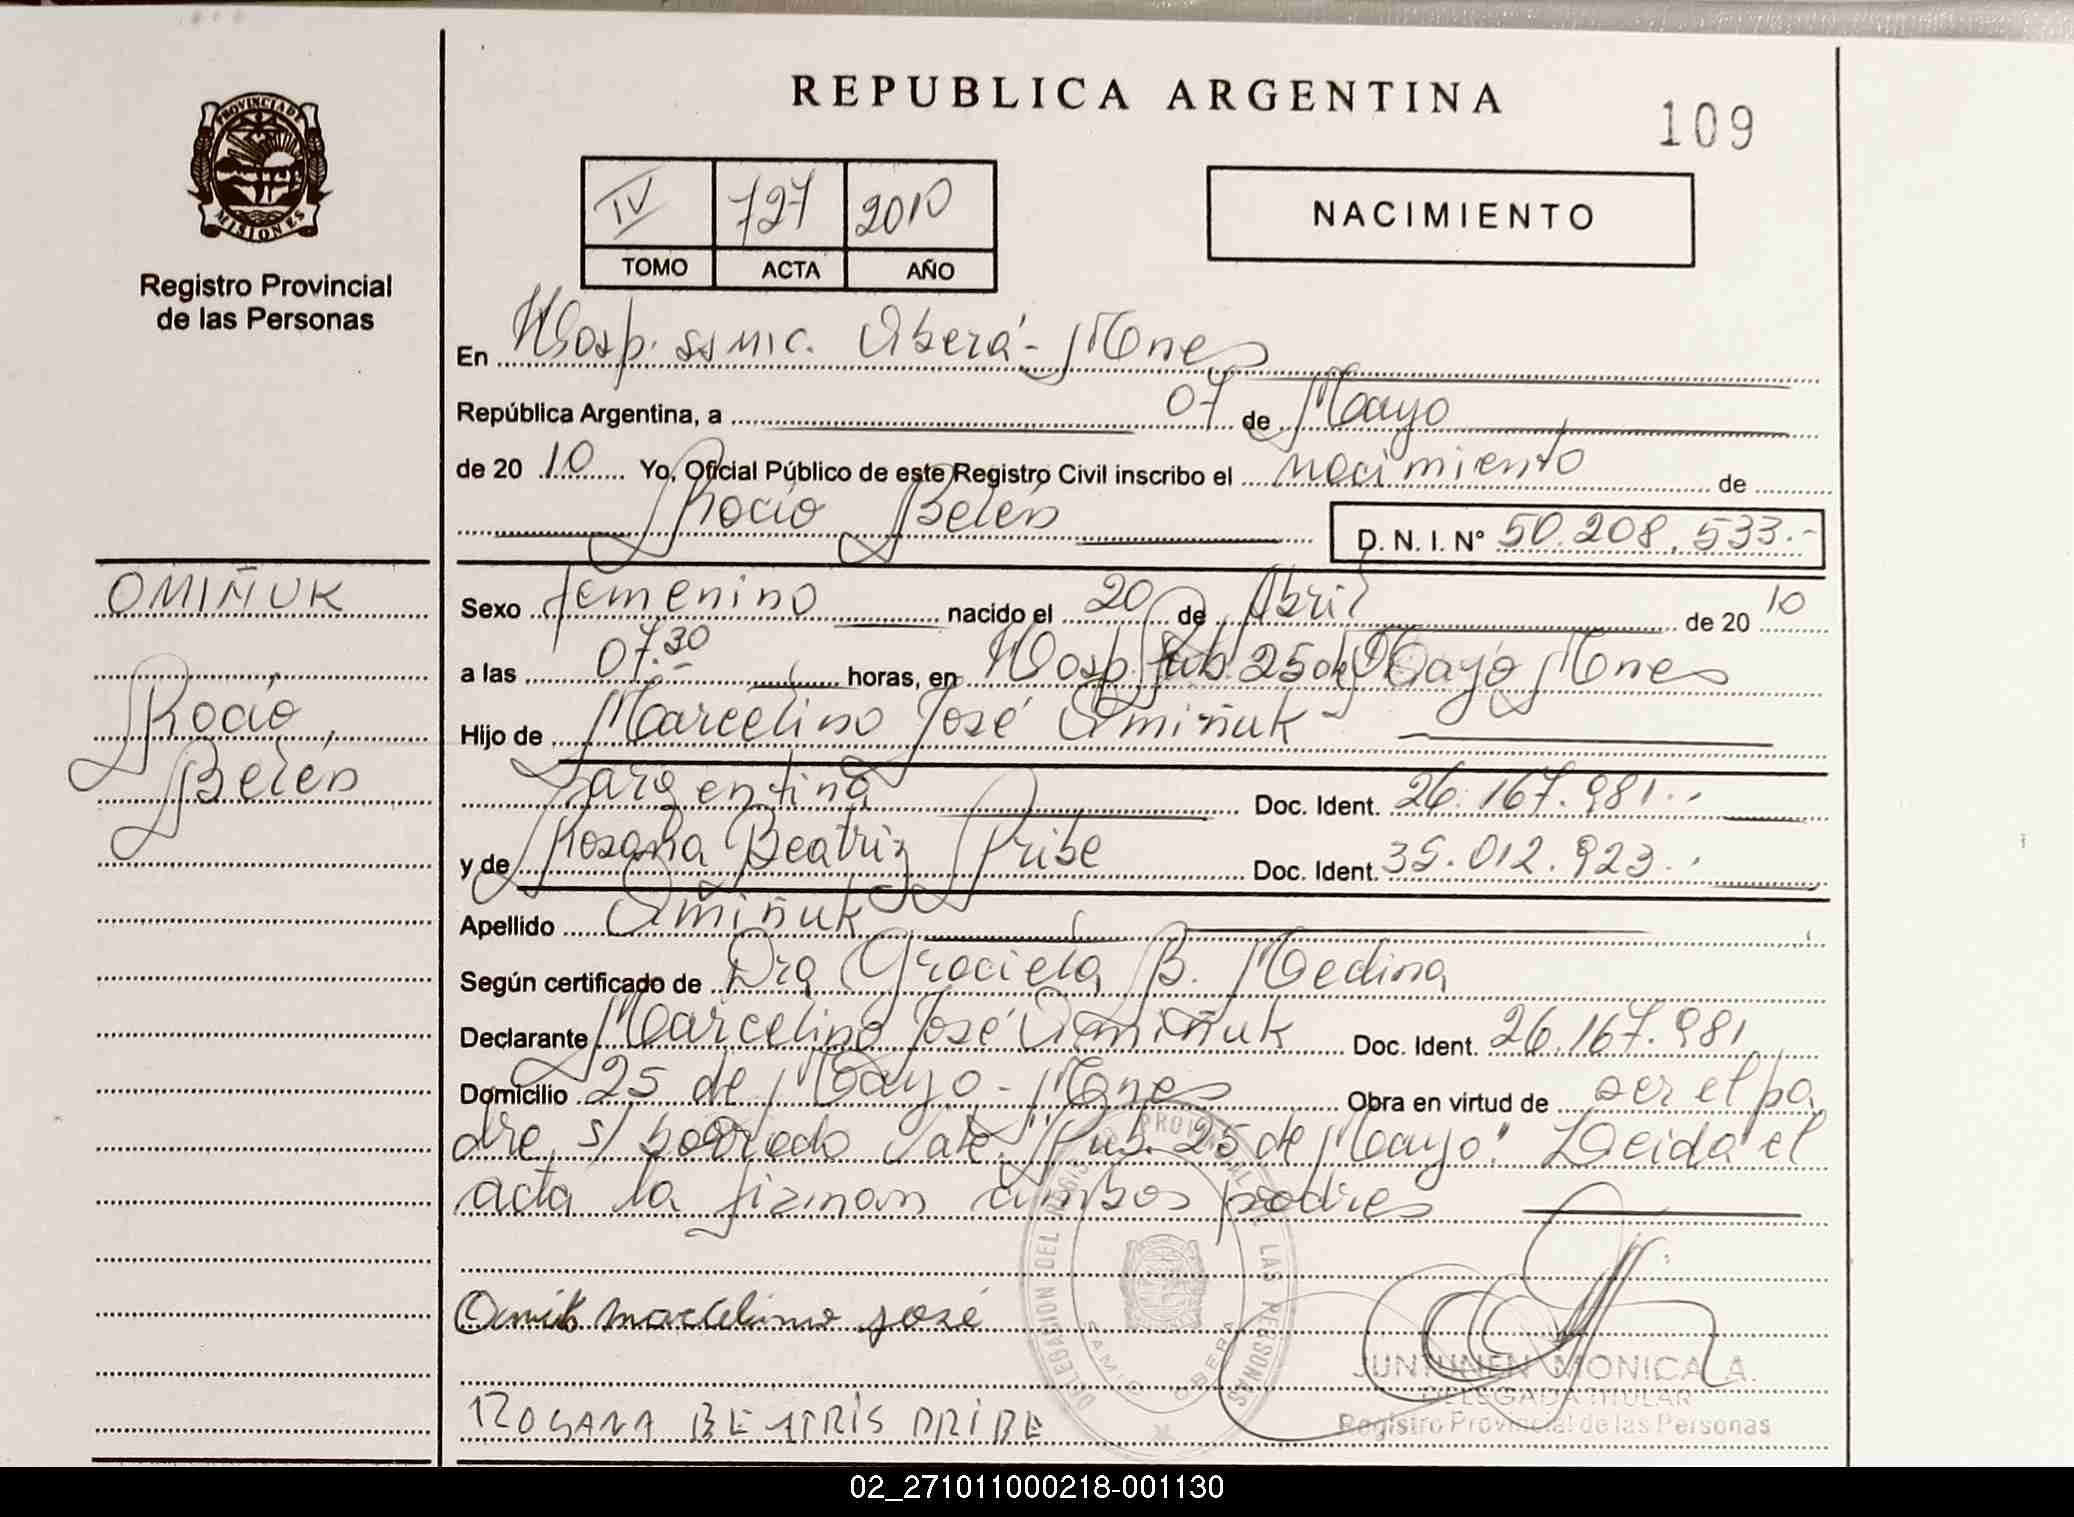 REPUBLICA ARGENTINA
109
PROVINCIA DE
MISIONES
Registro Provincial
de las Personas
IV 727 2010
TOMO ACTA AÑO
NACIMIENTO
En Hosp. ssmic. Oberá - Mnes
República Argentina, a 07 de Mayo
de 20 10 Yo, Oficial Público de este Registro Civil inscribo el nacimiento de
Rocío Belén D. N. I. N° 50.208.533.-
OMIÑUK
Rocío
Belén
Sexo femenino nacido el 20 de Abril de 20 10
a las 07.30 horas, en Hosp. Pub. 25 de Mayo Mnes
Hijo de Marcelino José Omiñuk
argentina Doc. Ident. 26.167.981.-
y de Rosana Beatriz Pribe Doc. Ident. 35.012.923.
Apellido Omiñuk
Según certificado de Dra Graciela B. Medina
Declarante Marcelino José Omiñuk Doc. Ident. 26.167.981
Domicilio 25 de Mayo - Mnes Obra en virtud de ser el pa
dre, s/ borrado Vale: "Pub. 25 de Mayo". Leida el
acta la firman ambos padres
marcelino josé
ROSANA BEATRIS PRIBE
DELEGACION DEL REGISTRO PROVINCIAL DE LAS PERSONAS
SAMIC OBERA
JUNTUNEN MONICA A.
DELEGADA TITULAR
Registro Provincial de las Personas
02_271011000218-001130